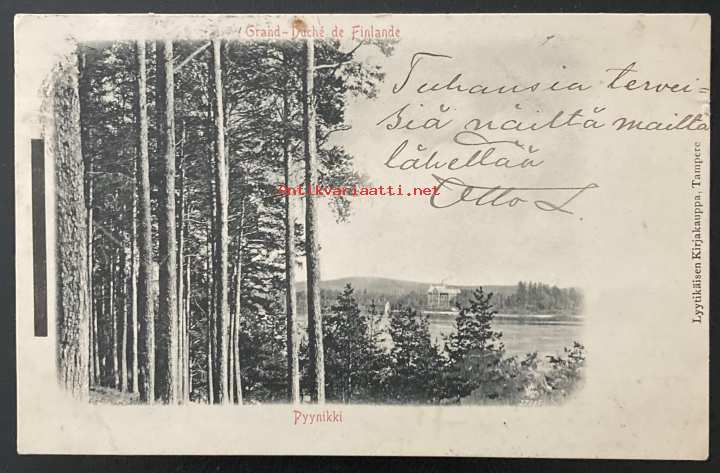 Grand-Duché de Finlande
Tuhansia tervei=
siä näiltä mailta
lähettää
Otto L.
antikvariaatti.net
Lyytikäisen Kirjakauppa, Tampere
Pyynikki